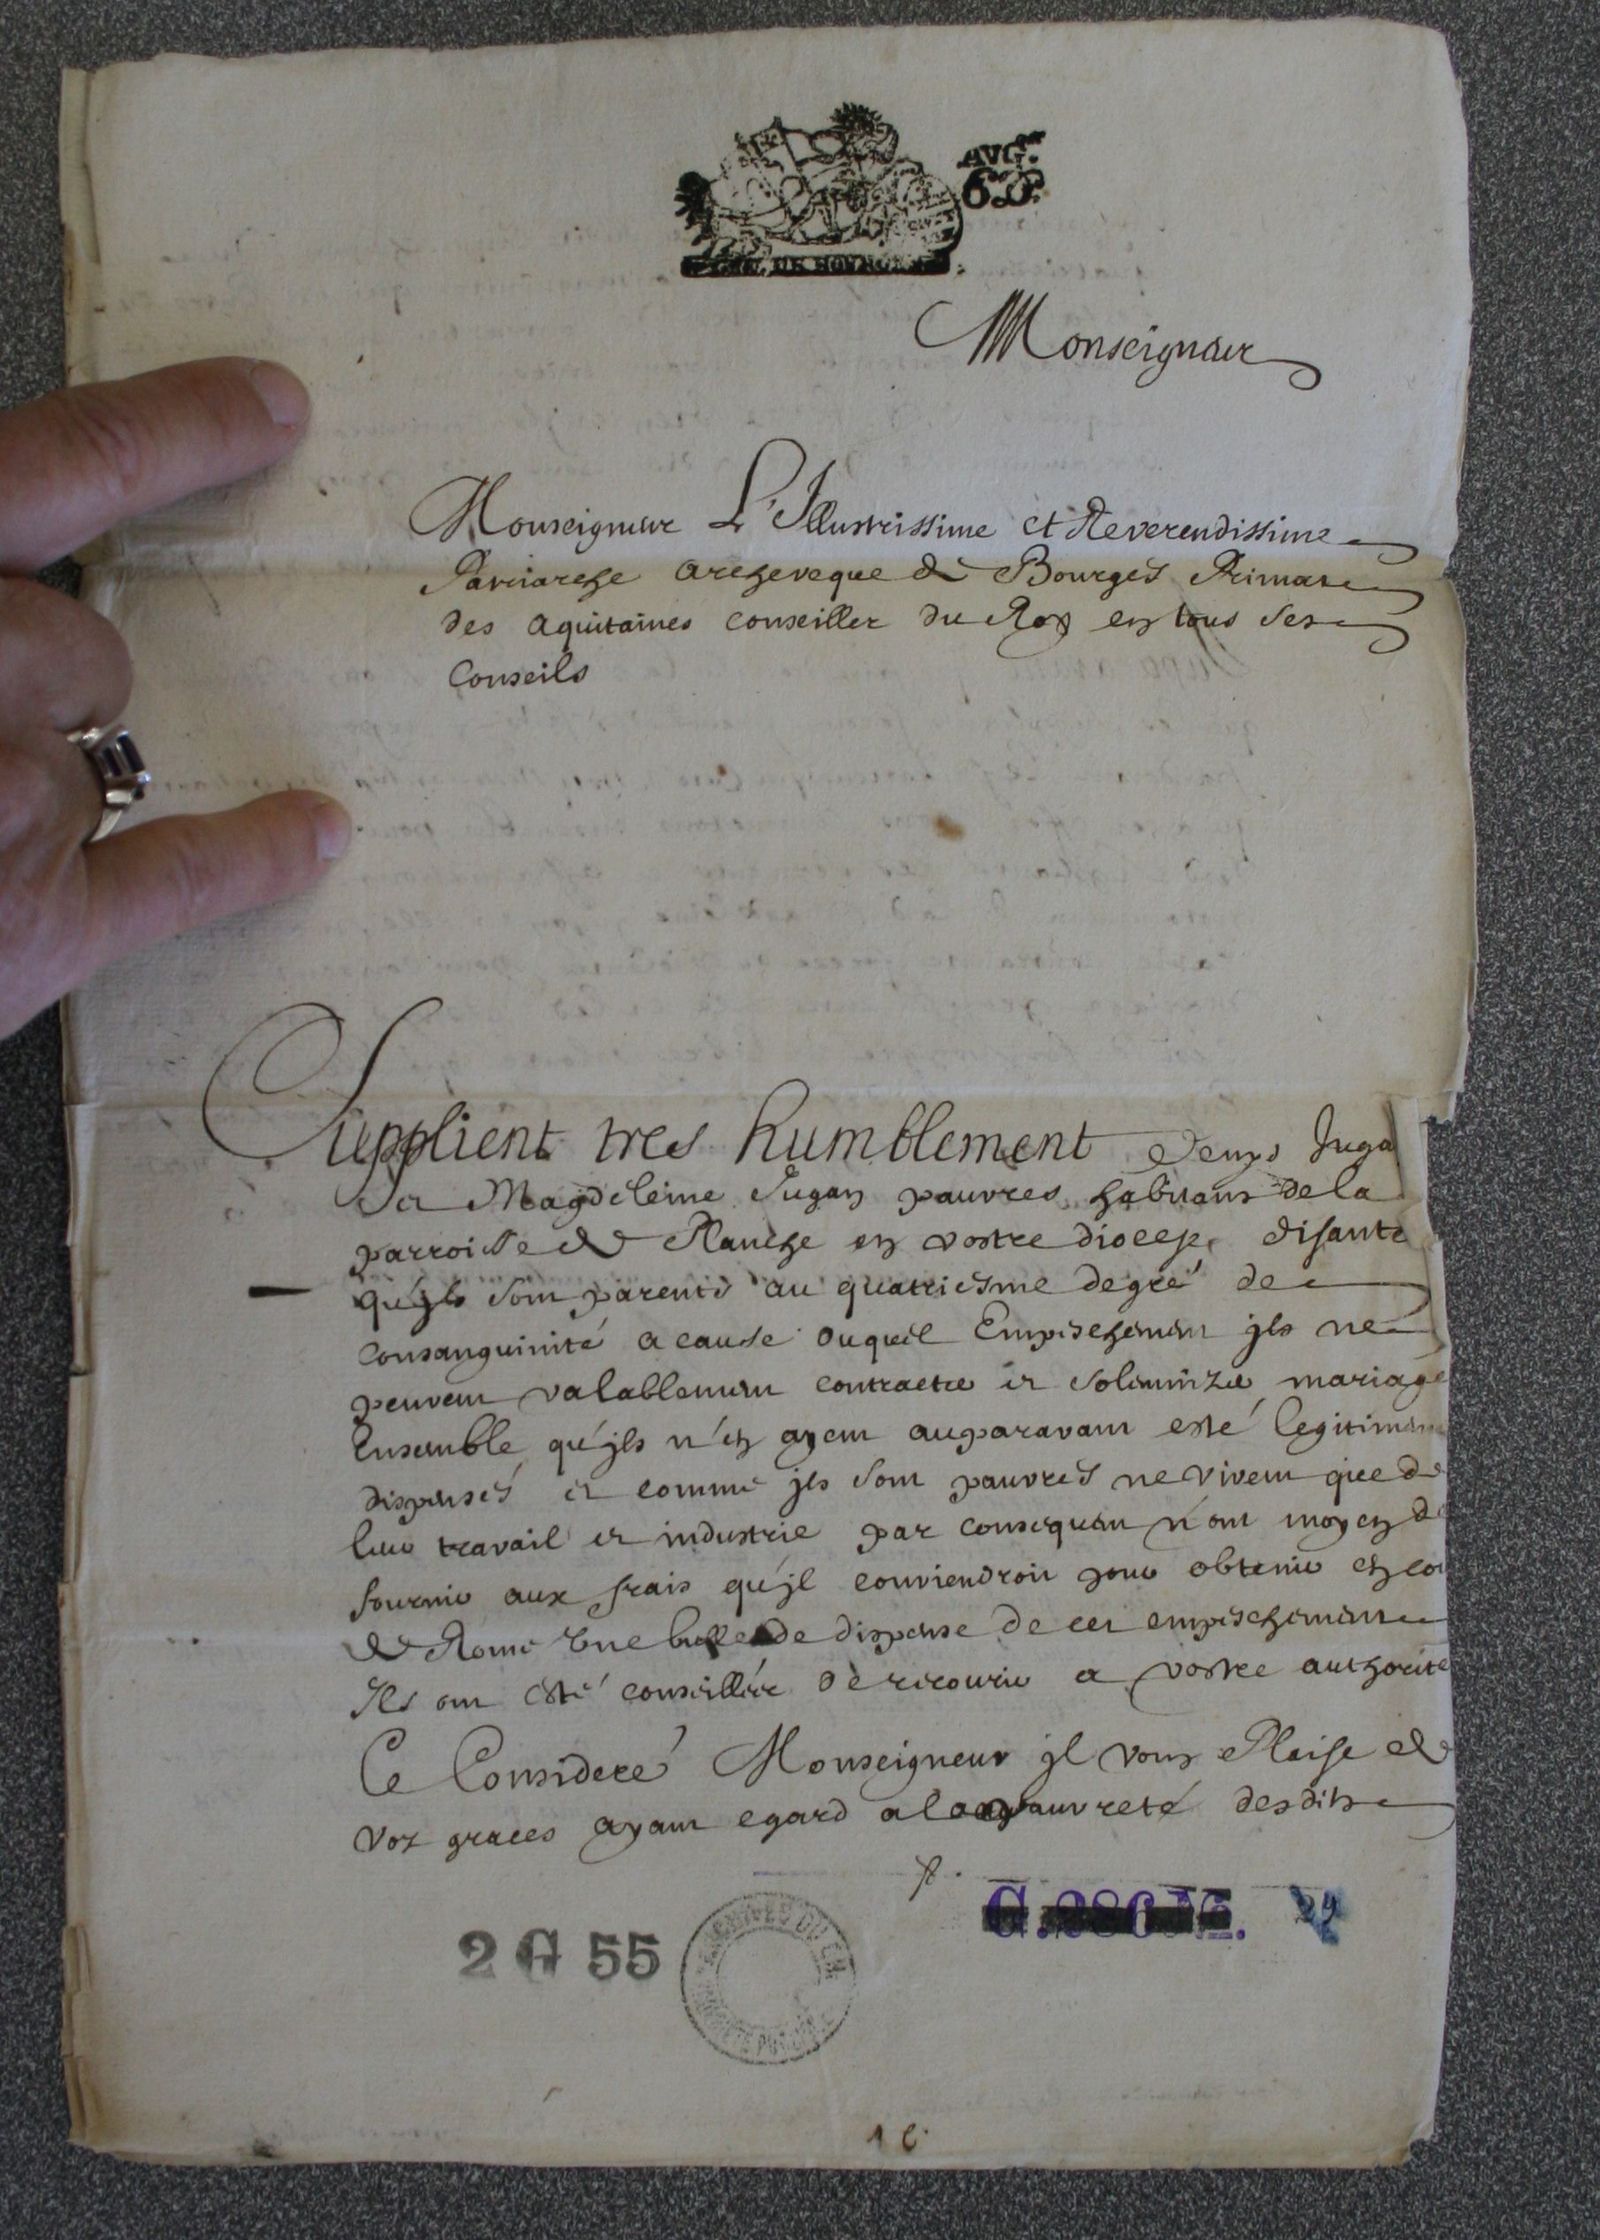 AVG.
6 D.
GEN. DE BOURGES
Monseigneur
Monseigneur L'Illustrissime et Reverendissime
Patriarche archeveque de Bourges Primat
des aquitaines conseiller du Roy en tous ses
Conseils
Supplient tres humblement Denys Juga
et Magdeleine Jugan pauvres habitans de la
parroisse de en vostre diocese disants
qu'jls sont parents au quatriesme degré de
consanguinité a cause duquel Empeschement jls ne
peuvent valablement contracter et solemnizer mariage
Ensemble qu'jls n'en ayent auparavant esté legitimem
dispensés et comme jls sont pauvres ne vivent que de
leur travail et industrie par consequent n'ont moyen de
fournir aux frais qu'jl conviendroit pour obtenir en cou
de Rome Une bulle de dispense de cet empeschement
Ils ont esté conseillés de recourir a vostre authorité
Ce Consideré Monseigneur jl vous Plaise de
Voz graces ayant egard a la pauvreté desdits
2 G 55
ARCHIVES DU CHER
G. 286
29